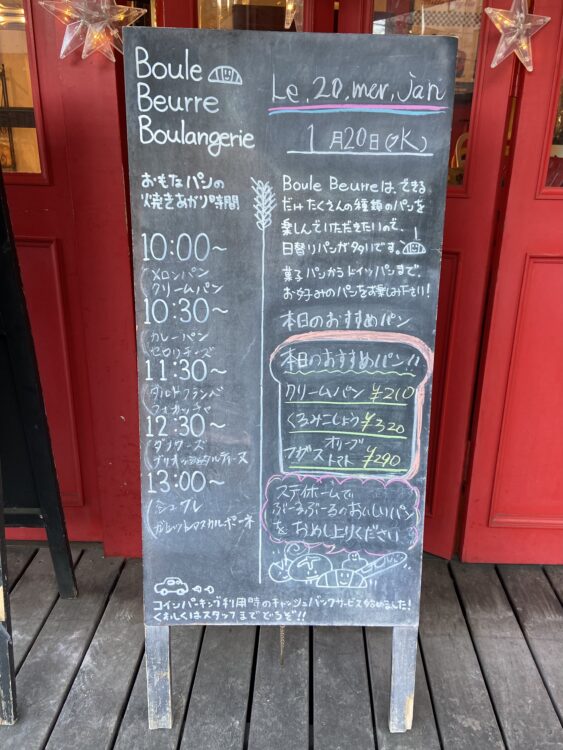 Boule
Beurre
Boulangerie
Le, 20, mer, jan
1月20日(水)
おもなパンの
焼きあがり時間
10:00～
メロンパン
クリームパン
10:30～
カレーパン
セロリチーズ
11:30～
タルトフランベ
フォカッチャ
12:30～
13:00～
Boule Beurreは、できる
だけたくさんの種類のパンを
楽しんでいただきたいので、
日替りパンが多いです。
菓子パンからドイツパンまで、
お好みのパンをお楽しみ下さい!
本日のおすすめパン
本日のおすすめパン!!
クリームパン ¥210
くるみこしょう ¥320
フガス オリーブ
トマト ¥290
ステイホームで
ぶーるぶーるのおいしいパン
をおめし上りください
コインパーキング利用時のキャッシュバックサービス始めました!
くわしくはスタッフまでどうぞ!!